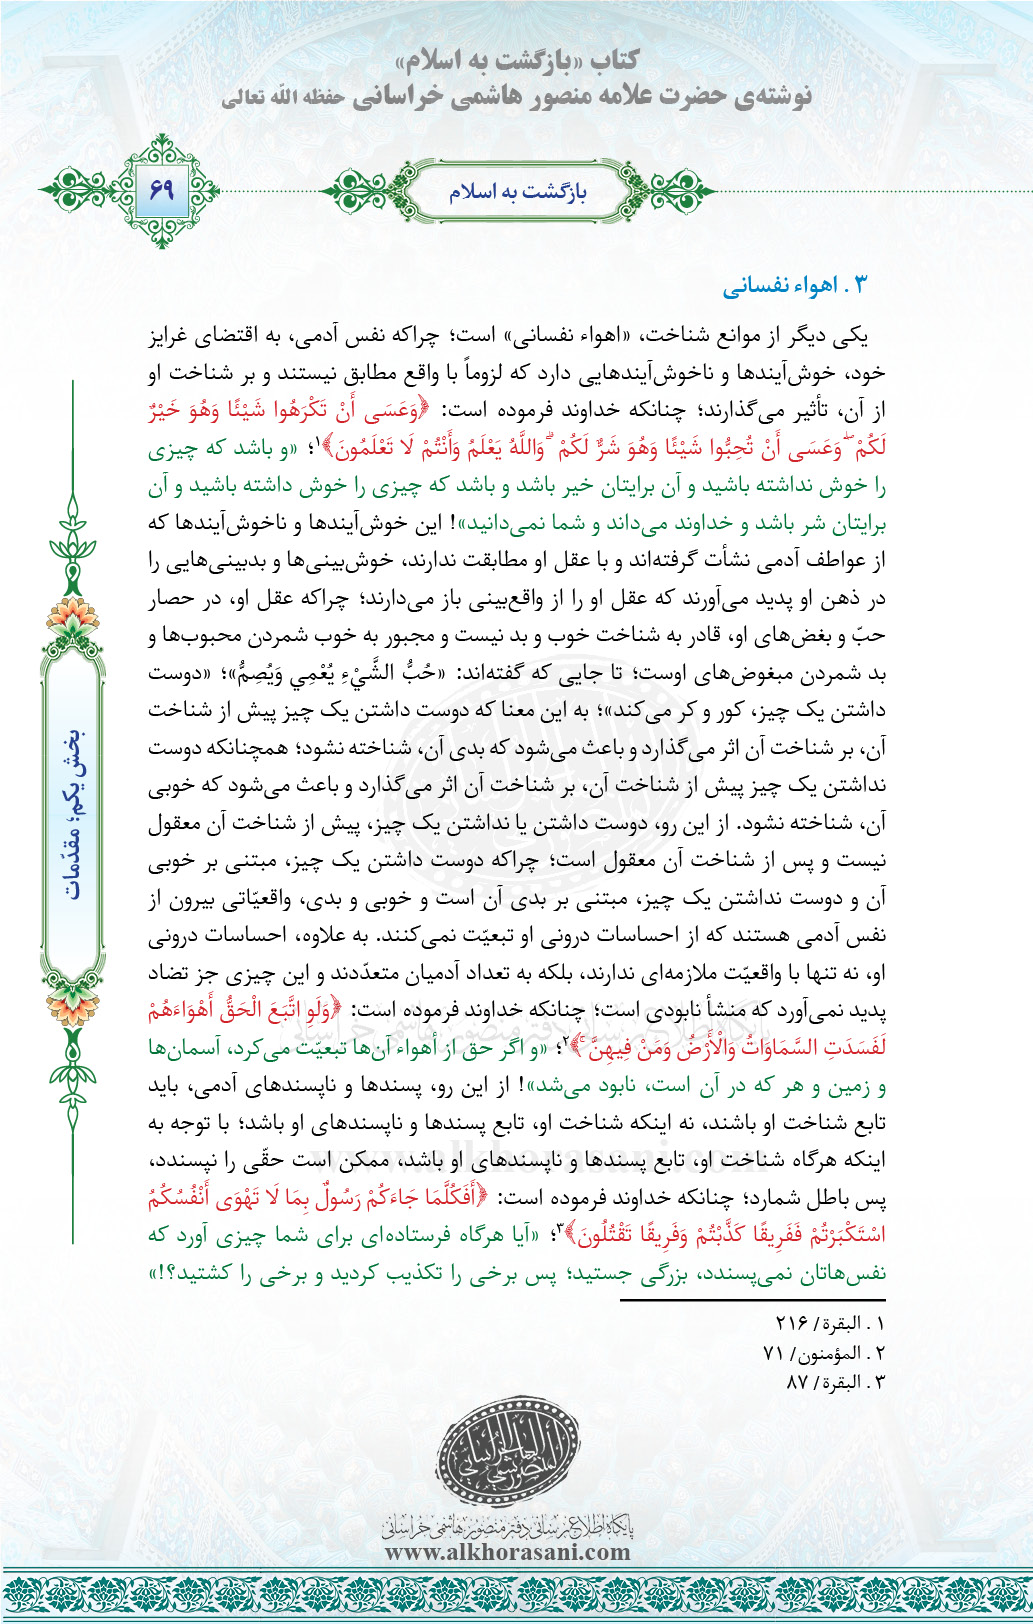 کتاب «بازگشت به اسلام»
نوشته‌ی حضرت علامه منصور هاشمی خراسانی حفظه الله تعالی
بازگشت به اسلام
۶۹
۳ . اهواء نفسانی
یکی دیگر از موانع شناخت، «اهواء نفسانی» است؛ چراکه نفس آدمی، به اقتضای غرایز
خود، خوش‌آیندها و ناخوش‌آیندهایی دارد که لزوماً با واقع مطابق نیستند و بر شناخت او
از آن، تأثیر می‌گذارند؛ چنانکه خداوند فرموده است: ﴿وَعَسَى أَنْ تَكْرَهُوا شَيْئًا وَهُوَ خَيْرٌ
لَكُمْ ۖ وَعَسَى أَنْ تُحِبُّوا شَيْئًا وَهُوَ شَرٌّ لَكُمْ ۗ وَاللَّهُ يَعْلَمُ وَأَنْتُمْ لَا تَعْلَمُونَ﴾۱؛ «و باشد که چیزی
را خوش نداشته باشید و آن برایتان خیر باشد و باشد که چیزی را خوش داشته باشید و آن
برایتان شر باشد و خداوند می‌داند و شما نمی‌دانید»! این خوش‌آیندها و ناخوش‌آیندها که
از عواطف آدمی نشأت گرفته‌اند و با عقل او مطابقت ندارند، خوش‌بینی‌ها و بدبینی‌هایی را
در ذهن او پدید می‌آورند که عقل او را از واقع‌بینی باز می‌دارند؛ چراکه عقل او، در حصار
حبّ و بغض‌های او، قادر به شناخت خوب و بد نیست و مجبور به خوب شمردن محبوب‌ها و
بد شمردن مبغوض‌های اوست؛ تا جایی که گفته‌اند: «حُبُّ الشَّيْءِ يُعْمِي وَيُصِمُّ»؛ «دوست
داشتن یک چیز، کور و کر می‌کند»؛ به این معنا که دوست داشتن یک چیز پیش از شناخت
آن، بر شناخت آن اثر می‌گذارد و باعث می‌شود که بدی آن، شناخته نشود؛ همچنانکه دوست
نداشتن یک چیز پیش از شناخت آن، بر شناخت آن اثر می‌گذارد و باعث می‌شود که خوبی
آن، شناخته نشود. از این رو، دوست داشتن یا نداشتن یک چیز، پیش از شناخت آن معقول
نیست و پس از شناخت آن معقول است؛ چراکه دوست داشتن یک چیز، مبتنی بر خوبی
آن و دوست نداشتن یک چیز، مبتنی بر بدی آن است و خوبی و بدی، واقعیّاتی بیرون از
نفس آدمی هستند که از احساسات درونی او تبعیّت نمی‌کنند. به علاوه، احساسات درونی
او، نه تنها با واقعیّت ملازمه‌ای ندارند، بلکه به تعداد آدمیان متعدّدند و این چیزی جز تضاد
پدید نمی‌آورد که منشأ نابودی است؛ چنانکه خداوند فرموده است: ﴿وَلَوِ اتَّبَعَ الْحَقُّ أَهْوَاءَهُمْ
لَفَسَدَتِ السَّمَاوَاتُ وَالْأَرْضُ وَمَنْ فِيهِنَّ ۚ﴾۲؛ «و اگر حق از أهواء آن‌ها تبعیّت می‌کرد، آسمان‌ها
و زمین و هر که در آن است، نابود می‌شد»! از این رو، پسندها و ناپسندهای آدمی، باید
تابع شناخت او باشند، نه اینکه شناخت او، تابع پسندها و ناپسندهای او باشد؛ با توجه به
اینکه هرگاه شناخت او، تابع پسندها و ناپسندهای او باشد، ممکن است حقّی را نپسندد،
پس باطل شمارد؛ چنانکه خداوند فرموده است: ﴿أَفَكُلَّمَا جَاءَكُمْ رَسُولٌ بِمَا لَا تَهْوَى أَنْفُسُكُمُ
اسْتَكْبَرْتُمْ فَفَرِيقًا كَذَّبْتُمْ وَفَرِيقًا تَقْتُلُونَ﴾۳؛ «آیا هرگاه فرستاده‌ای برای شما چیزی آورد که
نفس‌هاتان نمی‌پسندد، بزرگی جستید؛ پس برخی را تکذیب کردید و برخی را کشتید؟!»
۱ . البقرة/ ۲۱۶
۲ . المؤمنون/ ۷۱
۳ . البقرة/ ۸۷
بخش یکم؛ مقدّمات
المنصور الهاشمی الخراسانی
پایگاه اطلاع‌رسانی دفتر منصور هاشمی خراسانی
www.alkhorasani.com